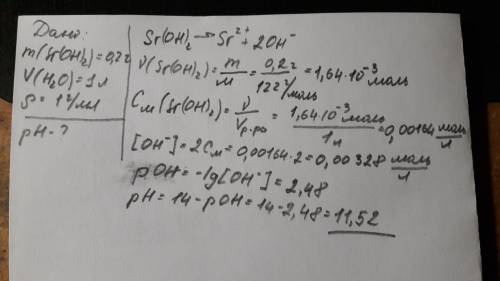 Дано:
m(Sr(OH)₂)=0,2г
V(H₂O)=1л
ρ=1г/мл
pH-?
Sr(OH)₂→Sr²⁺+2OH⁻
ν(Sr(OH)₂)=m/M=0,2г/122г/моль=1,64·10⁻³моль
Cм(Sr(OH)₂)=ν/Vр-ра=1,64·10⁻³/1л=0,00164моль/л
[OH⁻]=2Cм=0,00164·2=0,00328моль/л
pOH=-lg[OH⁻]=2,48
pH=14-pOH=14-2,48=11,52